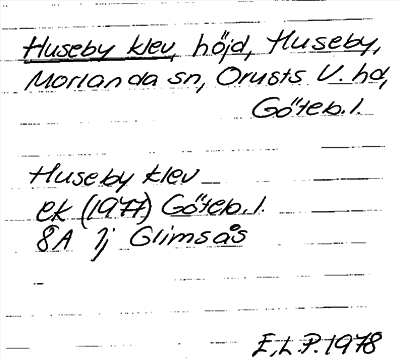 Huseby klev, höjd, Huseby,
Morlanda sn, Orusts V. hd,
Göteb. l.
Huseby klev
ek (1977) Göteb. l.
8A 1j Glimsås
E, L P. 1978